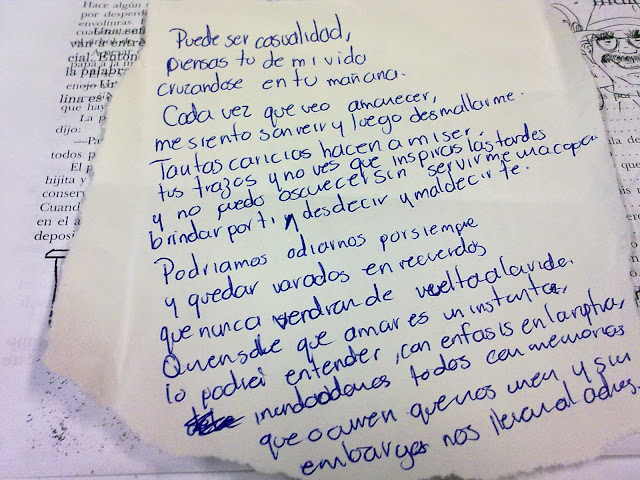 Hace algún
por desperdi
envolturas.
Una señ
varse entre
cial. Enton
papá a la m
la palabr
enojo
lina es e
que hay
dijo:
—Pa
todos p
El p
hijita y
Cuand
en el a
deposi
Puede ser casualidad,
piensas tu de mi vida
cruzandose en tu mañana.
Cada vez que veo amanecer,
me siento sonreir y luego desmallarme.
Tantas caricias hacen a mi ser
tus trazos y no ves que inspiras las tardes
y no puedo oscurecer sin servirme una copa
brindar por ti y desdecir y maldecirte.
Podriamos odiarnos por siempre
y quedar varados en recuerdos
que nunca vendran de vuelta a la vida.
Quien sabe que amar es un instante,
lo podrá entender, con enfasis en
inundandonos todos con memorias
que ocurren que nos unen y sin
embargo nos llevan al adios.